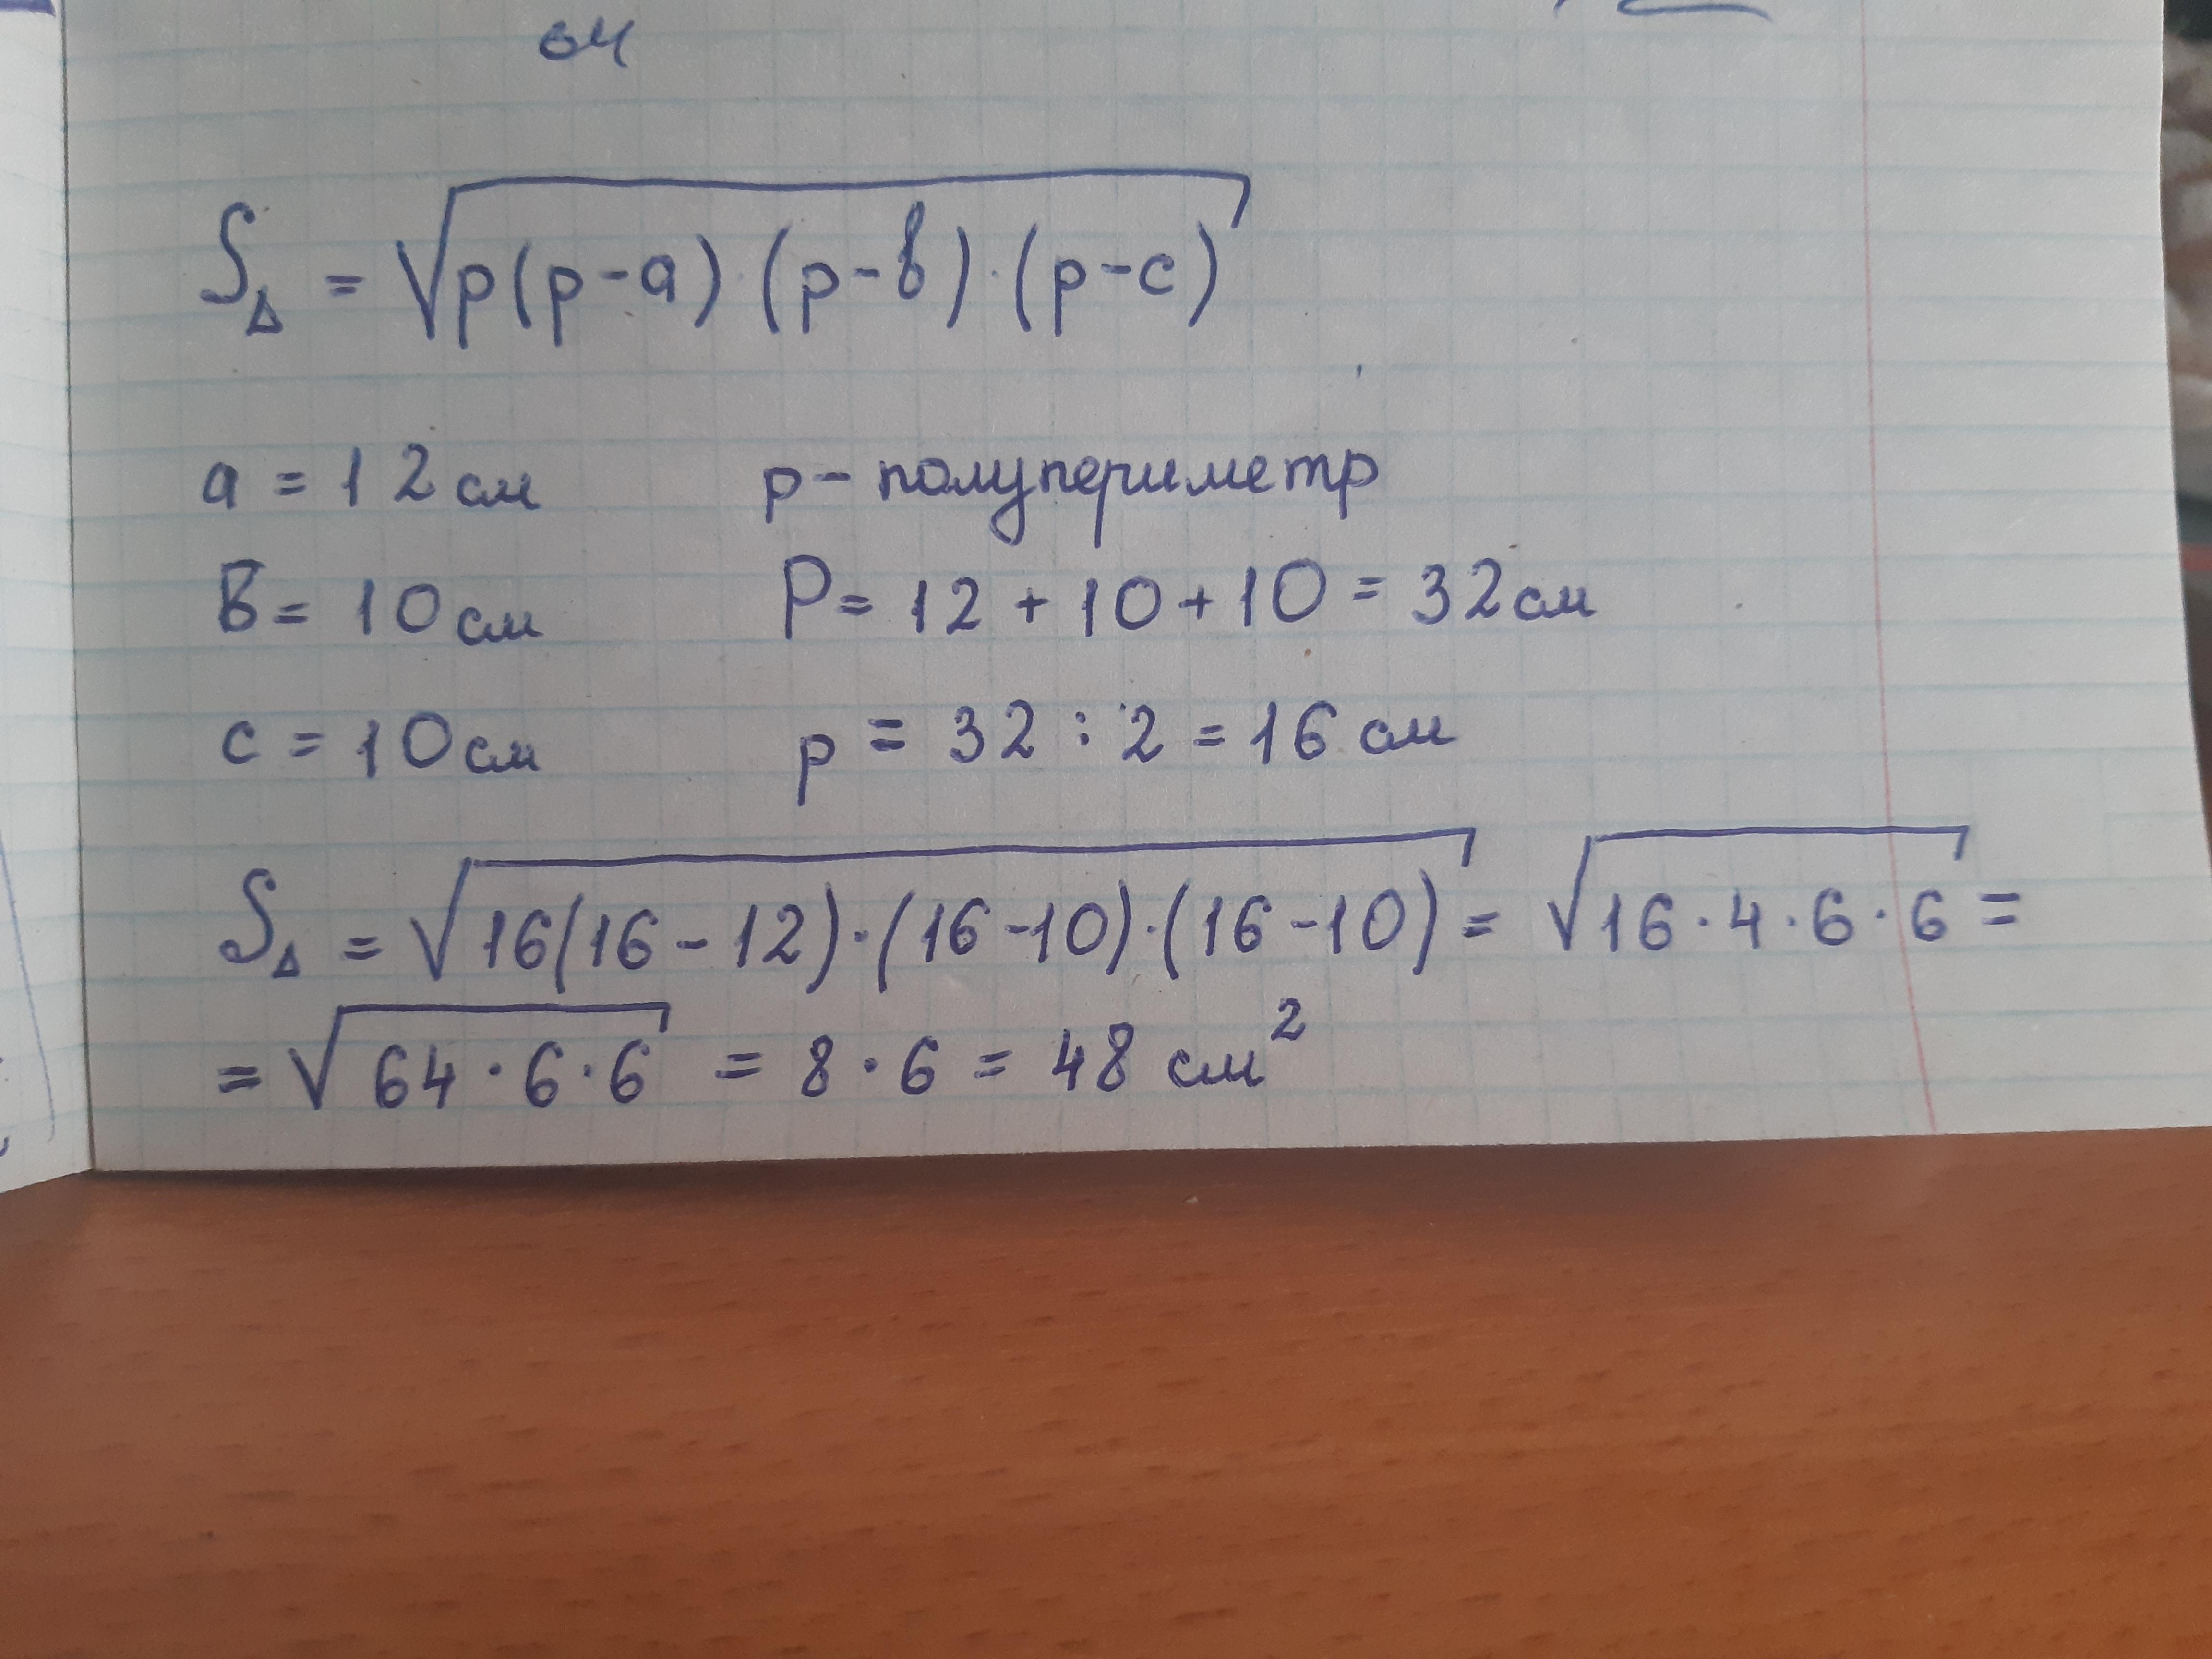 64
S△ = √p(p-a)·(p-b)·(p-c)
a = 12 см p - полупериметр
B = 10 см P = 12 + 10 + 10 = 32 см
c = 10 см p = 32 : 2 = 16 см
S△ = √16(16-12)·(16-10)·(16-10) = √16·4·6·6 =
= √64·6·6 = 8·6 = 48 см²